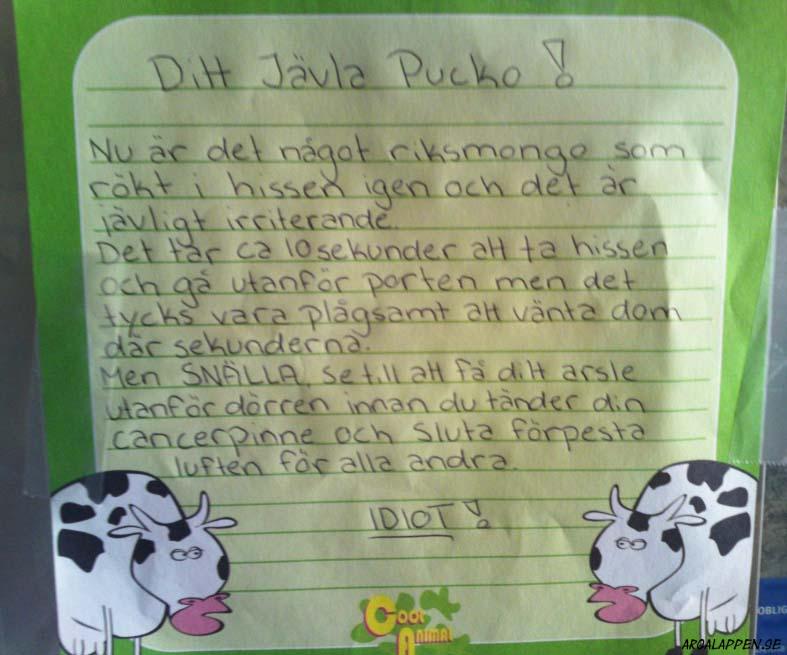 Ditt Jävla Pucko!
Nu är det något riksmongo som
rökt i hissen igen och det är
jävligt irriterande.
Det tar ca 10 sekunder att ta hissen
och gå utanför porten men det
tycks vara plågsamt att vänta dom
där sekunderna.
Men SNÄLLA, se till att få ditt arsle
utanför dörren innan du tänder din
cancerpinne och sluta förpesta
luften för alla andra.
IDIOT!
Cool
Animal
OBLIG
ARGALAPPEN.SE